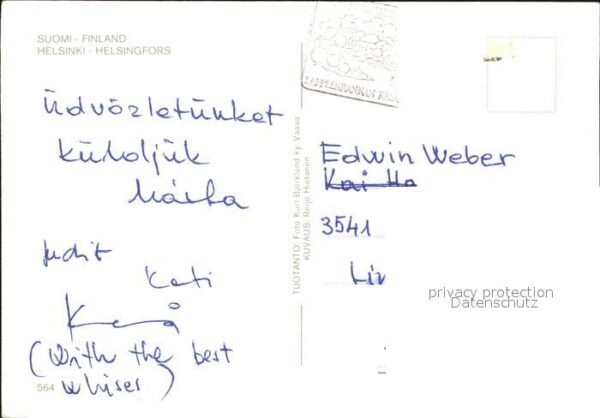 SUOMI - FINLAND
HELSINKI - HELSINGFORS
Üdvözletünket
küldjük
Márta
Judit
Kati
(With the best
whises)
564
TUOTANTO Foto Kurt Björklund ky. Vaasa
KUVAUS Reijo Hietanen
Edwin Weber
Kai Ha
3541
Liv
privacy protection
Datenschutz